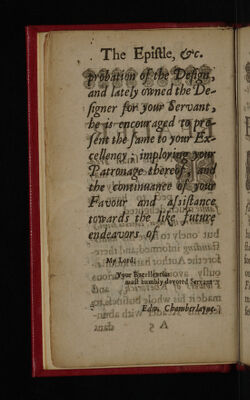 The Epiſtle, &c.
probation of the Deſign,
and lately owned the De-
ſigner for your Servant,
he is encouraged to pre-
ſent the ſame to your Ex-
cellency, imploring your
Patronage thereof, and
the continuance of your
Favour and Aſsiſtance
towards the like future
endeavors of
My Lord,
Your Excellencies
moſt humbly devoted Servant
Edw. Chamberlayne.